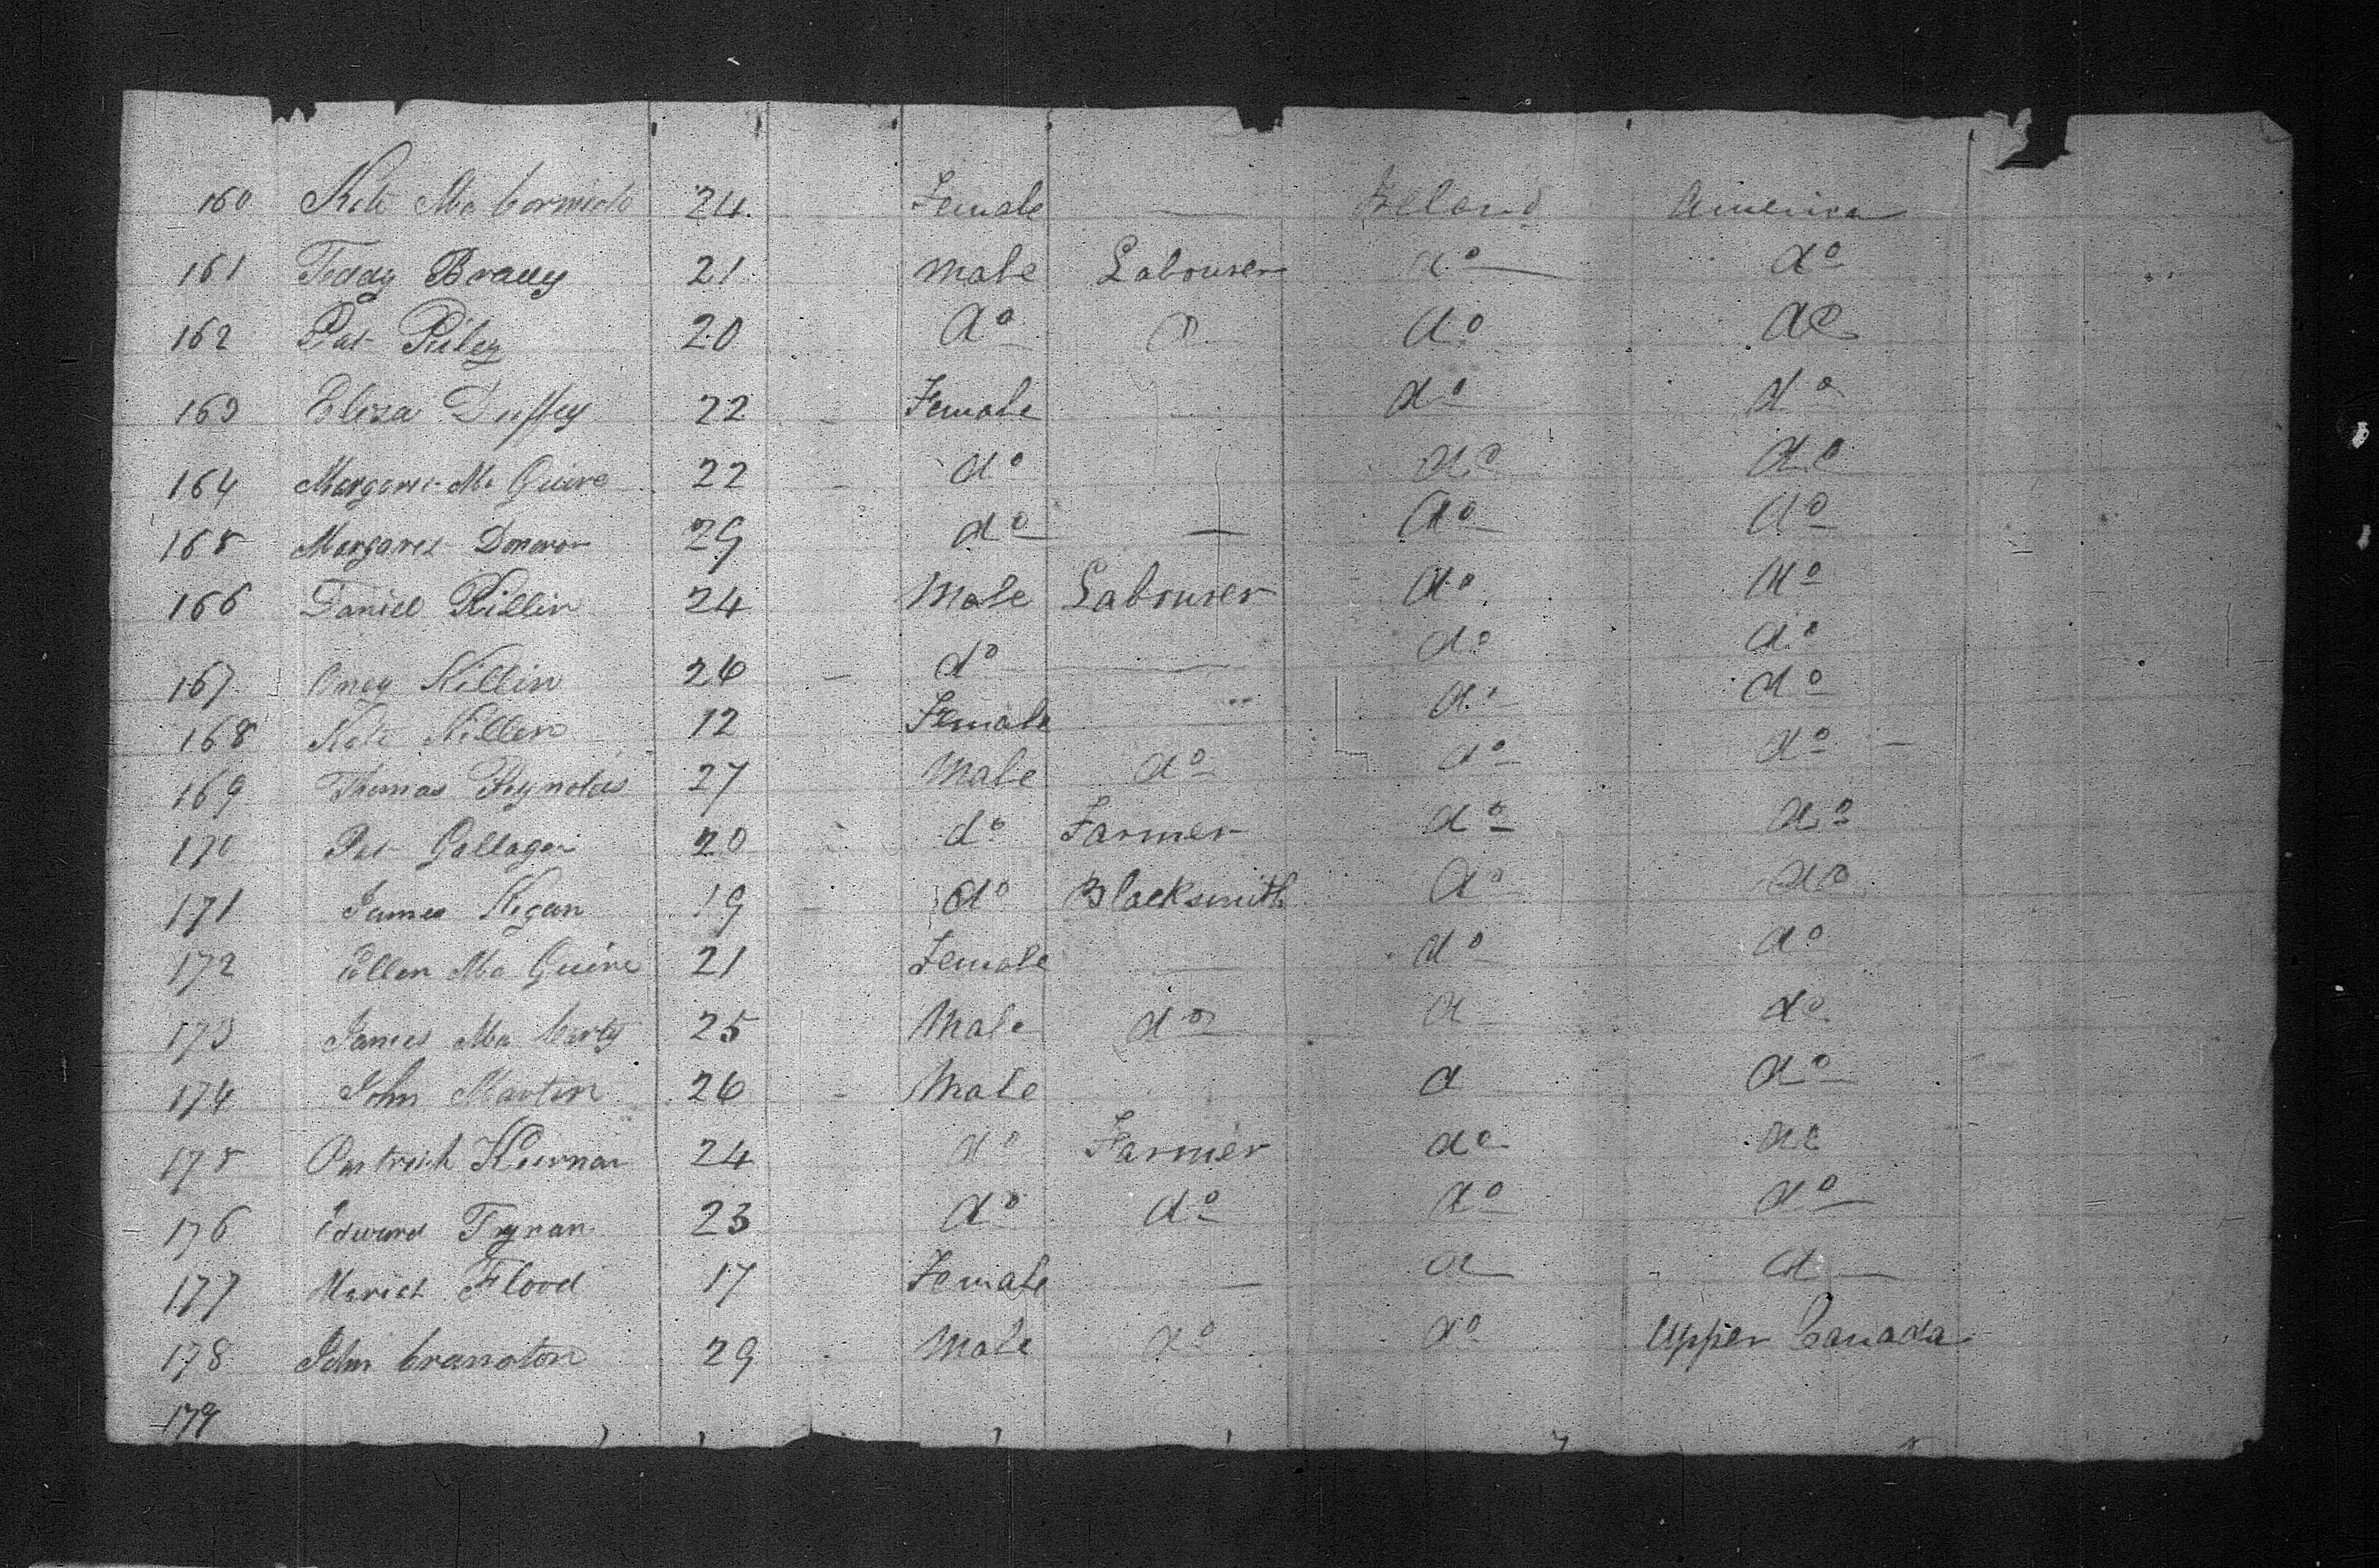 160 Kate Mc Cormick 24 Female — Ireland America
161 Teddy Brady 21 Male Labourer do do
162 Pat Riley 20 do do do do
163 Eliza Duffey 22 Female do do
164 Margaret Mc Guire 22 do do do
165 Margaret Donavan 29 do — do do
166 Daniel Killin 24 Male Labourer do do
167 Killin 26 do — do do
168 Kate Killen 12 Female " do do
169 Thomas Reynolds 27 Male do do do
170 Pat Gallager 20 do Farmer do do
171 James Kegan 19 do Blacksmith do do
172 Ellen Mc Guire 21 Female — do do
173 James Mc Carty 25 Male do d do
174 John Martin 26 Male d do
175 Patrick Kiernan 24 do Farmer do do
176 Edward Tynan 23 do do do do
177 Flood 17 Female — d d
178 John Cranston 29 Male do do Upper Canada
179